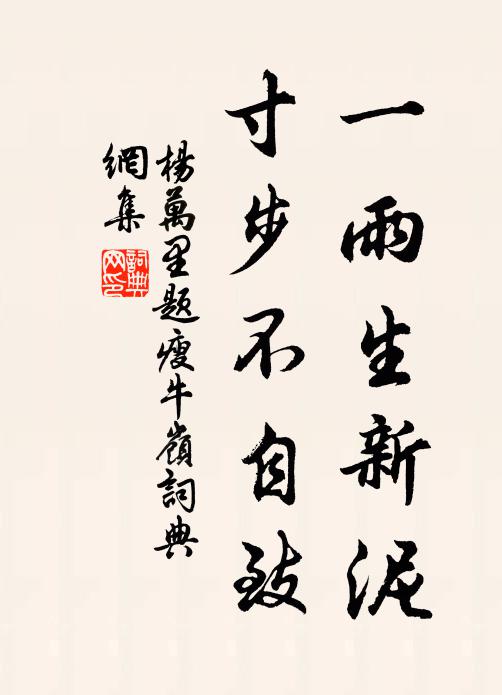 一雨生新泥
寸步不自致
楊萬里題瘦牛嶺詞典
網集
詞典网印